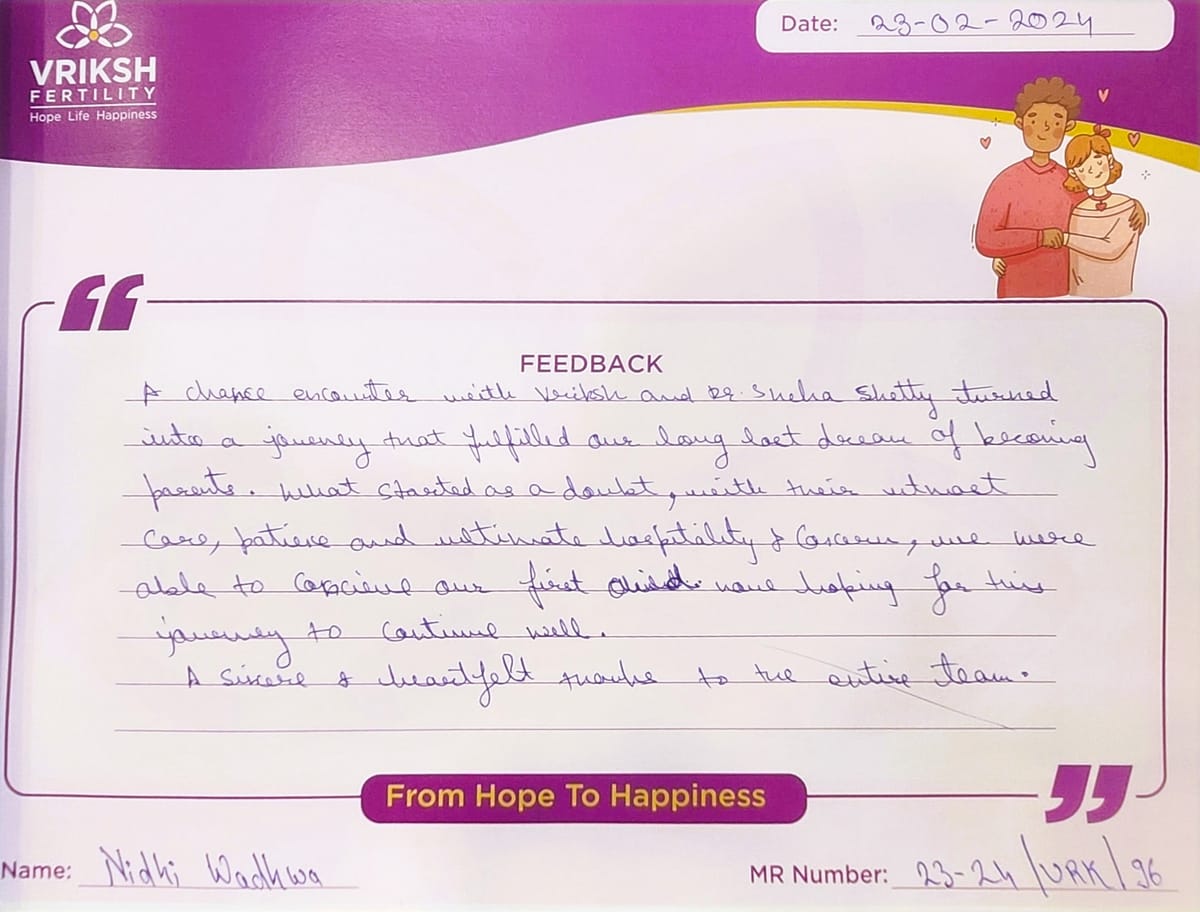 VRIKSH
FERTILITY
Hope Life Happiness
Date: 23-02-2024
FEEDBACK
A chance encounter with Vriksh and Dr. Sneha Shetty turned
into a journey that fulfilled our long lost dream of becoming
parents. What started as a doubt, with their utmost
care, patience and ultimate hospitality & Concern, we were
able to conceive our first child. now hoping for this
journey to continue well.
A sincere & heartfelt thanks to the entire team.
From Hope To Happiness
Name: Nidhi Wadhwa
MR Number: 23-24/VRK/96